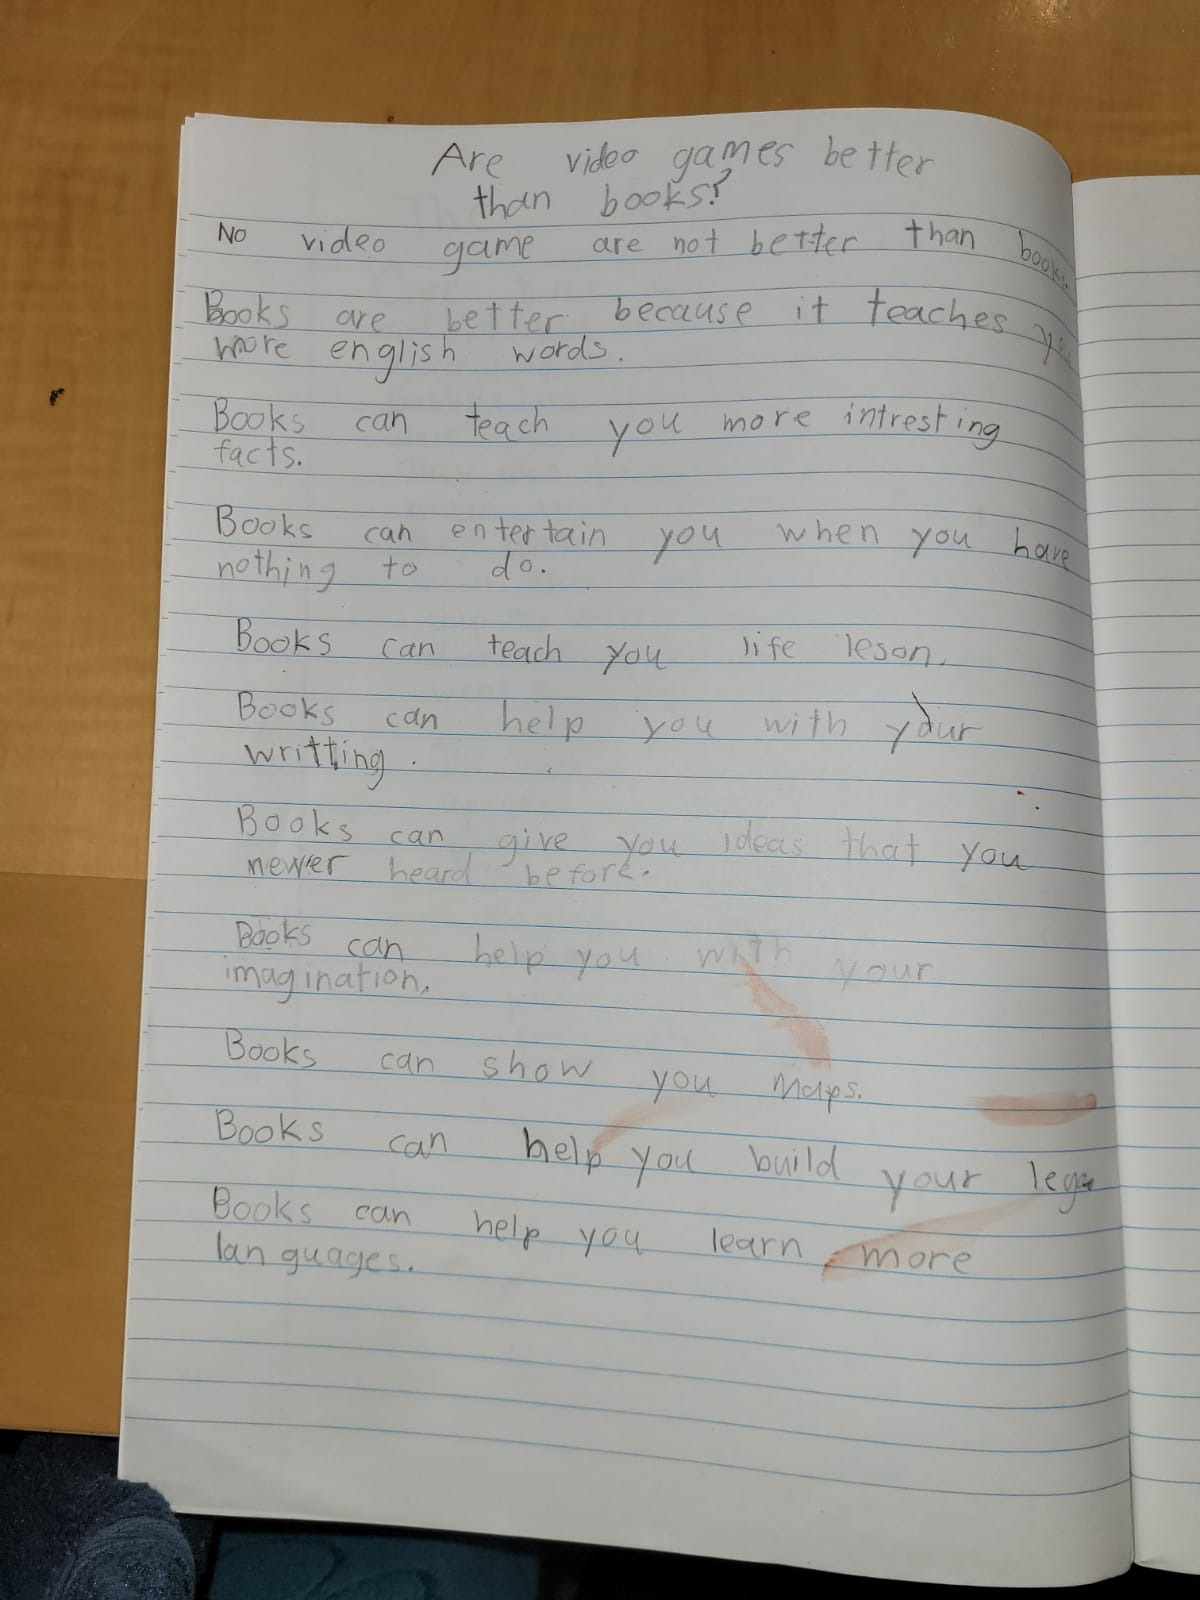 Are video games better
than books?
No video game are not better than books.
Books are better because it teaches you
more english words.
Books can teach you more intresting
facts.
Books can entertain you when you have
nothing to do.
Books can teach you life leson.
Books can help you with your
writting.
Books can give you ideas that you
never heard before.
Books can help you with your
imagination.
Books can show you maps.
Books can help you build your lego
Books can help you learn more
languages.